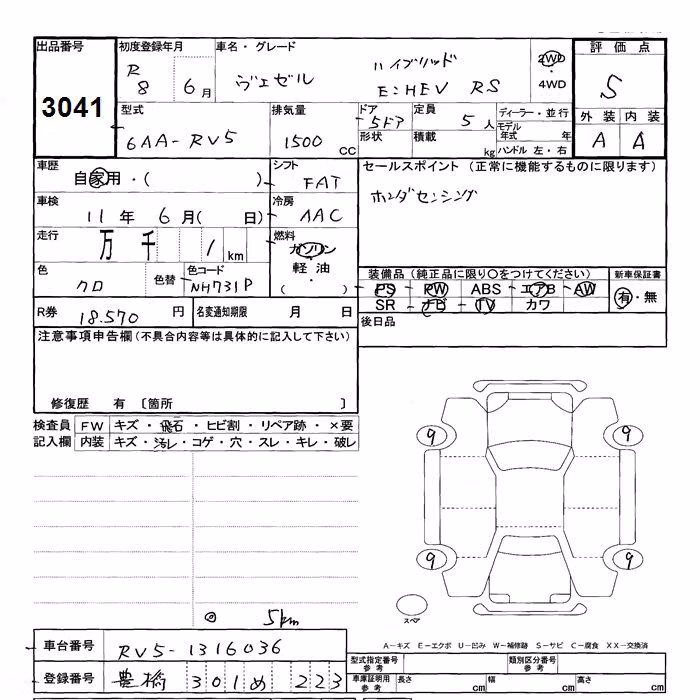 出品番号 初度登録年月 車名・グレード 評価点
3041 R 8 6月 ヴェゼル ハイブリッド e:HEV RS 2WD ・ 4WD S
型式 排気量 ドア 定員 ディーラー・並行 外装 内装
6AA-RV5 1500 CC 5ドア 5人 モデル年式 年 A A
形状 積載 kg ハンドル 左・右
車歴 自家用・( ) シフト FAT セールスポイント (正常に機能するものに限ります)
車検 11年 6月( 日) 冷房 AAC ホンダセンシング
走行 万 千 1 km 燃料 ガソリン・軽油 ( )
色 クロ 色替 色コード NH731P 装備品 (純正品に限り○をつけてください) 新車保証書
PS PW ABS エアB AW 有・無
SR ナビ TV カワ
R券 18.570 円 名変通知期限 月 日 後日品
注意事項申告欄 (不具合内容等は具体的に記入して下さい)
修復歴 有 〔箇所 〕
検査員 FW キズ・飛石・ヒビ割・リペア跡・×要
記入欄 内装 キズ・汚レ・コゲ・穴・スレ・キレ・破レ
9 9
9 9
スペア
◎ 5km
A-キズ E-エクボ U-凹み W-補修跡 S-サビ C-腐食 XX-交換済
車台番号 RV5-1316036 型式指定番号 参考 類別区分番号 参考
登録番号 豊橋 301 め 223 車庫証明用 参考 長さ cm 幅 cm 高さ cm